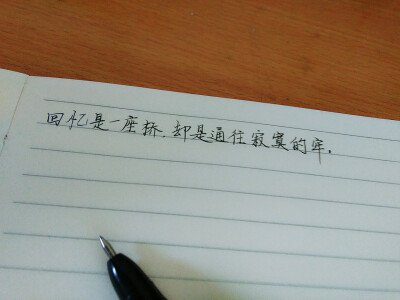 回忆是一座桥,却是通往寂寞的牢。